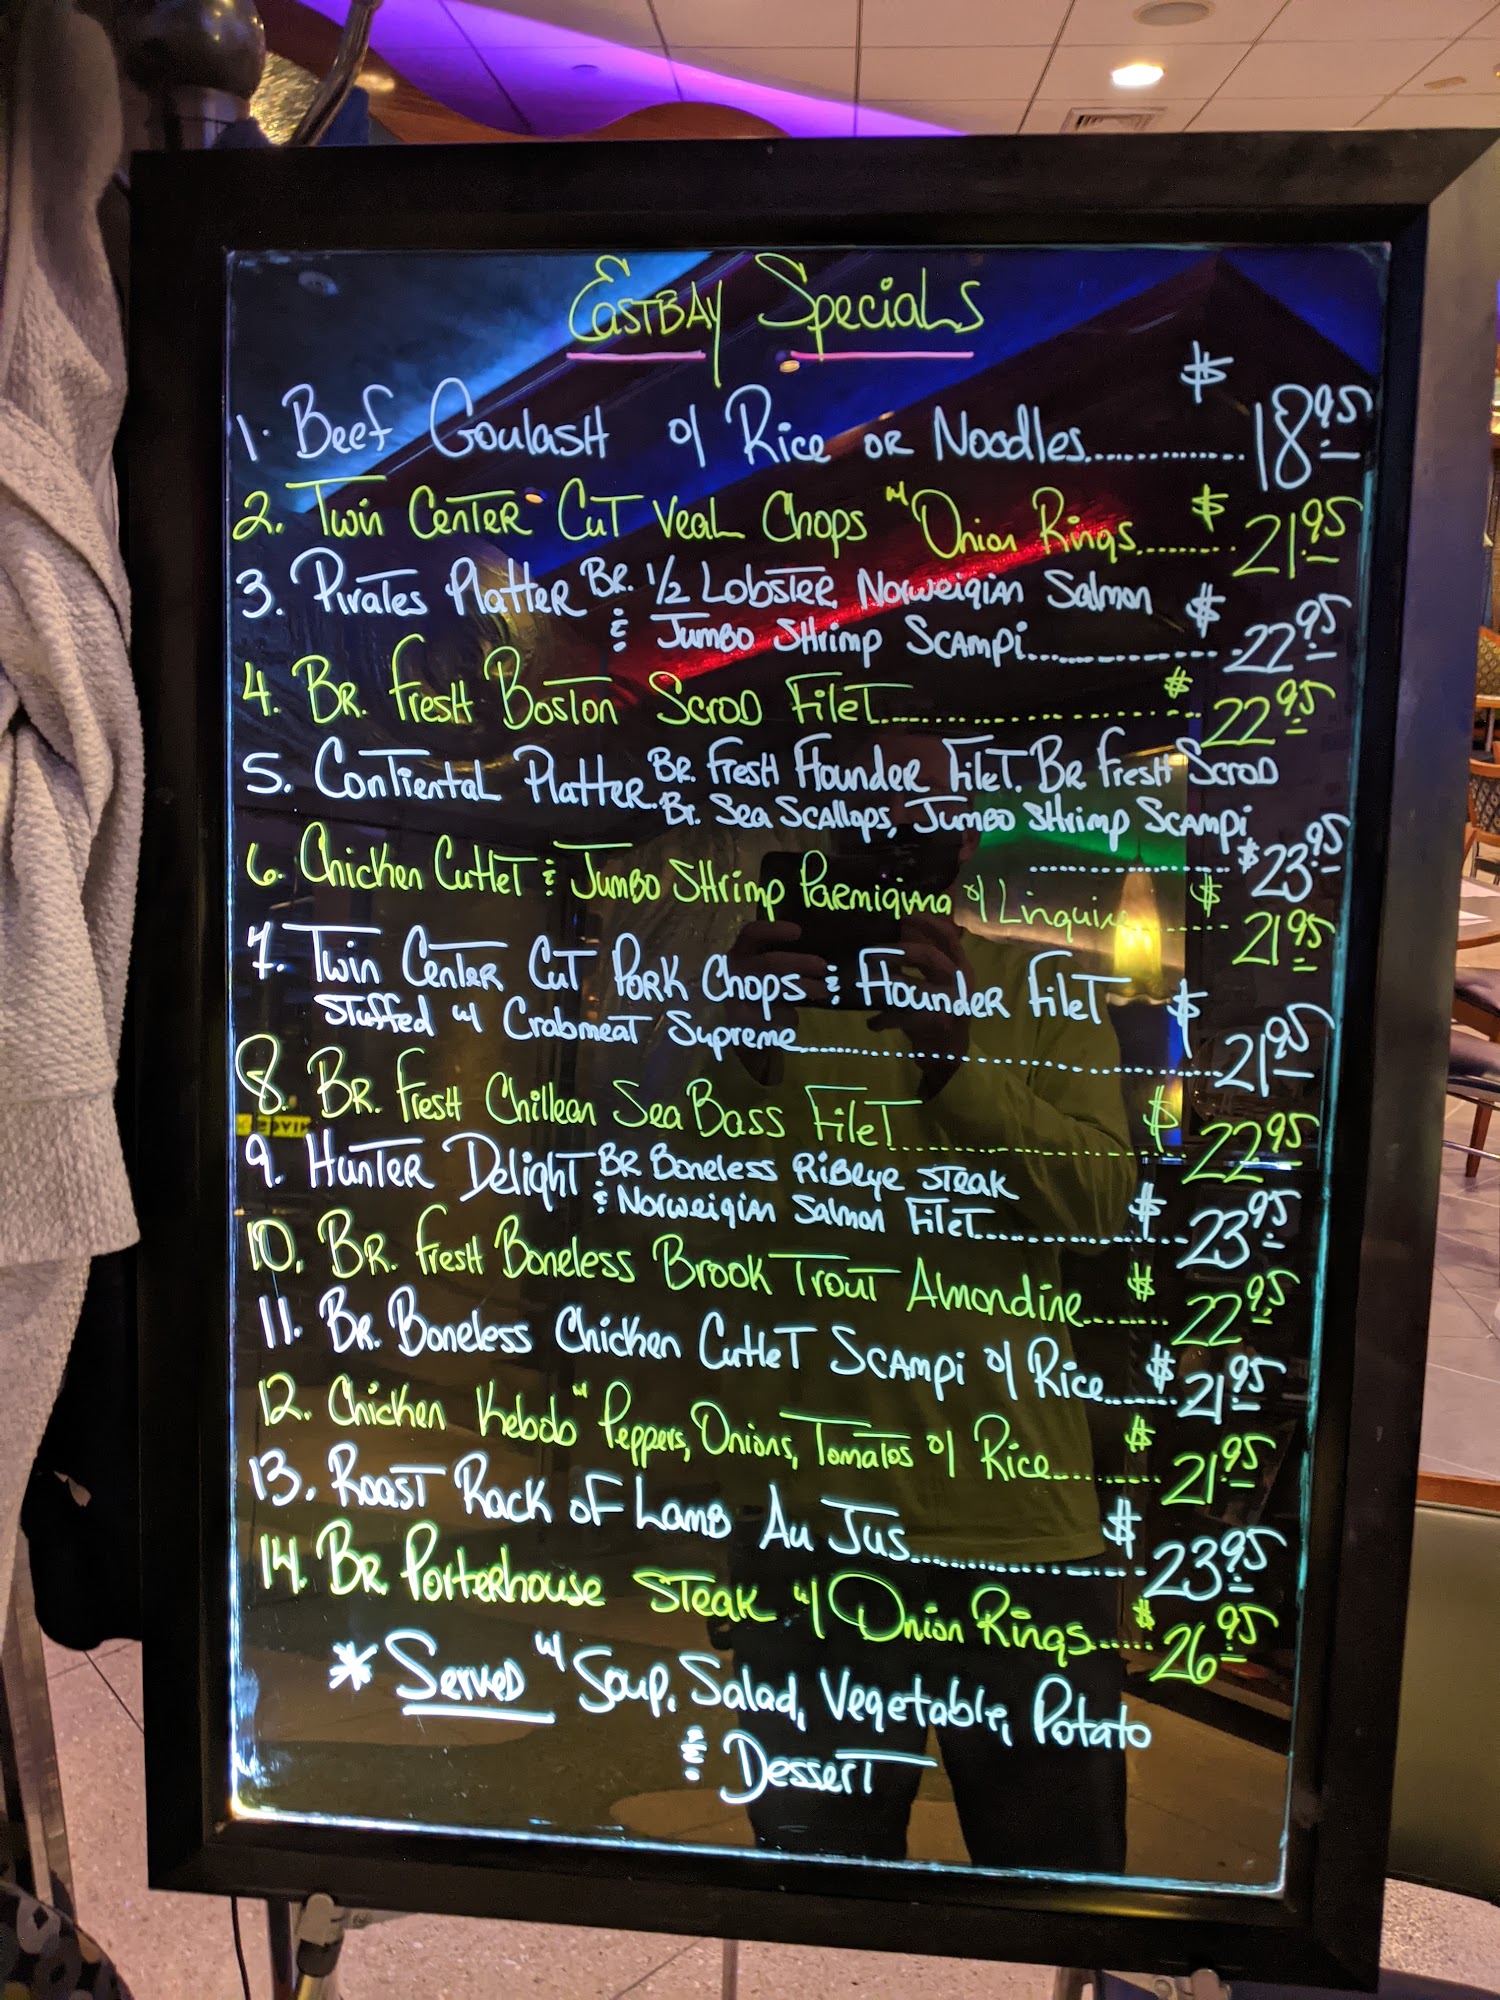 EastBay Specials
1. Beef Goulash o/ Rice or Noodles............ $18.95
2. Twin Center Cut Veal Chops w/ Onion Rings........ $21.95
3. Pirates Platter Br. 1/2 Lobster, Norweigian Salmon
& Jumbo Shrimp Scampi.............. $22.95
4. Br. Fresh Boston Scrod Filet................ $22.95
5. Contiental Platter. Br. Fresh Flounder Filet. Br Fresh Scrod
Br. Sea Scallops, Jumbo Shrimp Scampi
............ $23.95
6. Chicken Cutlet & Jumbo Shrimp Parmigiana o/ Linquine........ $21.95
7. Twin Center Cut Pork Chops & Flounder Filet
Stuffed w/ Crabmeat Supreme................ $21.95
8. Br. Fresh Chillean Sea Bass Filet................ $22.95
9. Hunter Delight Br Boneless Ribeye Steak
& Norweigian Salmon Filet.............. $23.95
10. Br. Fresh Boneless Brook Trout Almondine........ $22.95
11. Br. Boneless Chicken Cutlet Scampi o/ Rice...... $21.95
12. Chicken Kebob w/ Peppers, Onions, Tomatos o/ Rice.......... $21.95
13. Roast Rack of Lamb Au Jus.............. $23.95
14. Br. Porterhouse Steak w/ Onion Rings...... $26.95
* Served w/ Soup, Salad, Vegetable, Potato
& Dessert